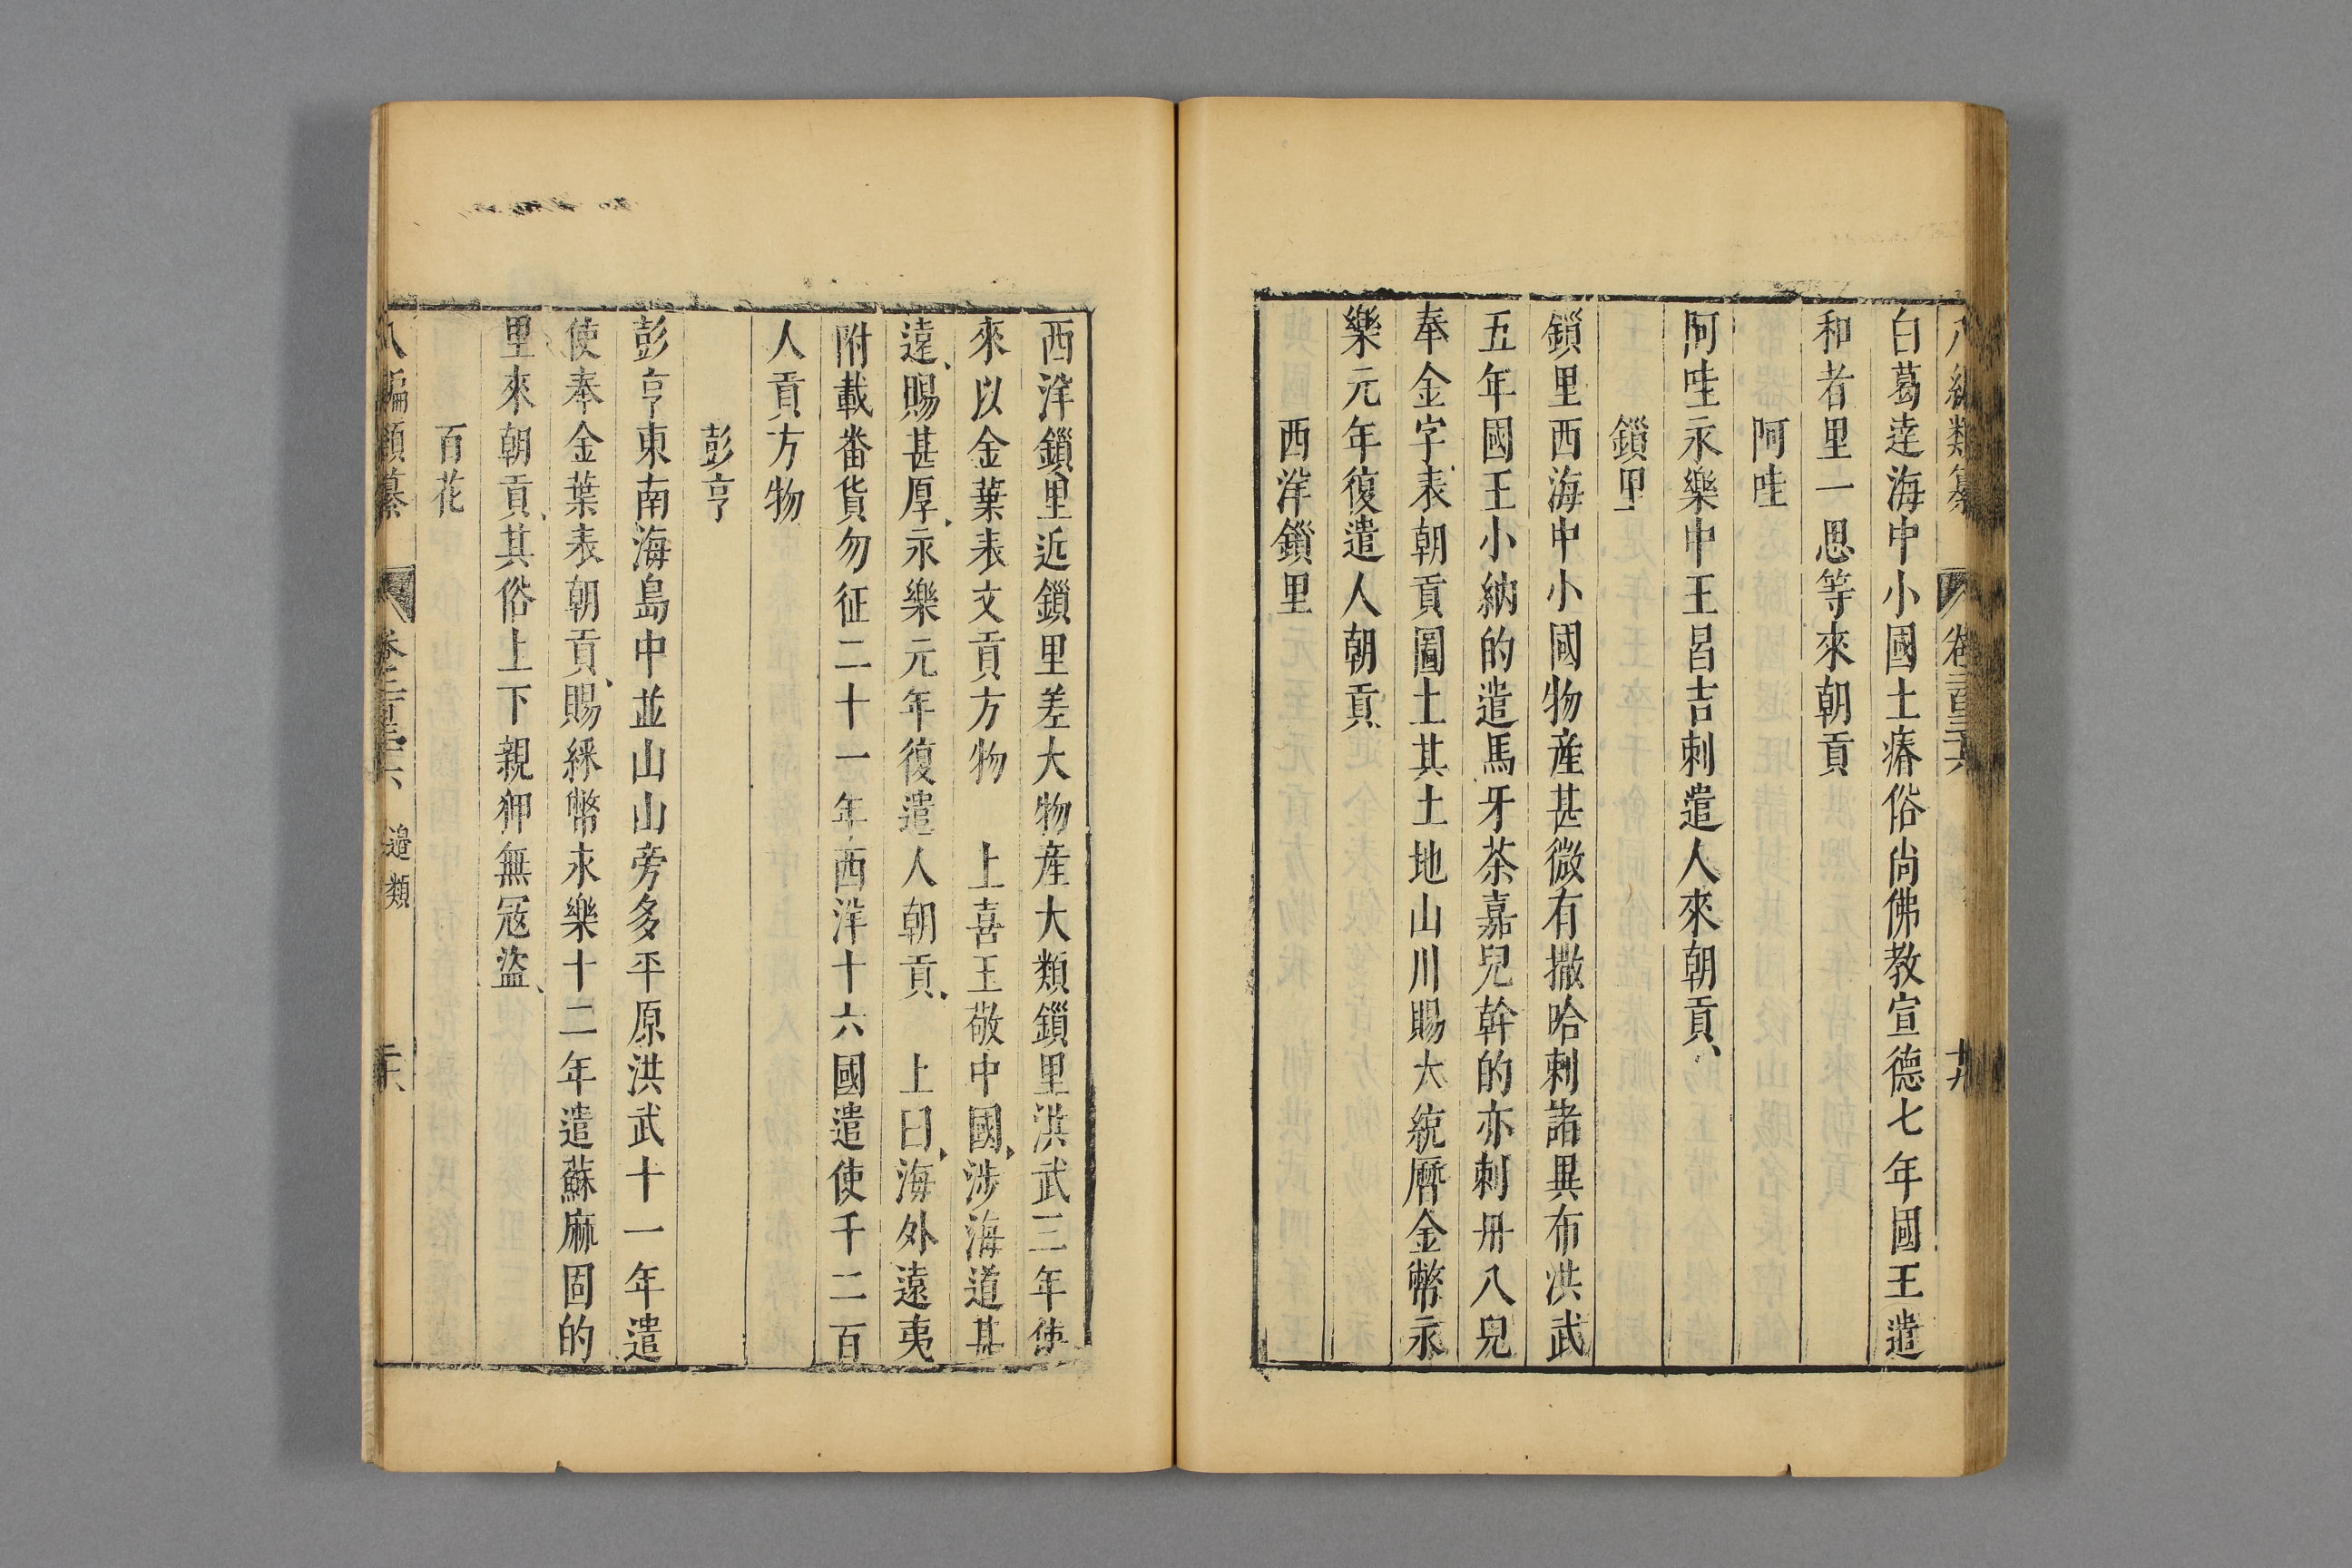 白葛達海中小國土瘠俗尚佛教宣德七年國王遣
和者里一思等來朝貢
阿哇
阿哇永樂中王昌吉刺遣人來朝貢、
鎖里
鎖里西海中小國物產甚微有撒哈剌諸異布洪武
五年國王小納的遣馬牙茶嘉兒幹的亦刺丹八兒
奉金字表朝貢圖土其土地山川賜大統曆金幣永
樂元年復遣人朝貢
西洋鎖里
西洋鎖里近鎖里差大物產大類鎖里洪武三年使
來以金葉表文貢方物 上喜王敬中國、涉海道甚
遠、賜甚厚、永樂元年復遣人朝貢、 上曰、海外遠夷
附載畨貨勿征二十一年西洋十六國遣使千二百
人貢方物
彭亨
彭亨東南海島中並山山旁多平原洪武十一年遣
使奉金葉表朝貢、賜綵幣永樂十二年遣蘇麻固的
里來朝貢、其俗上下親狎無冦盜、
百花
八編類纂 邉類